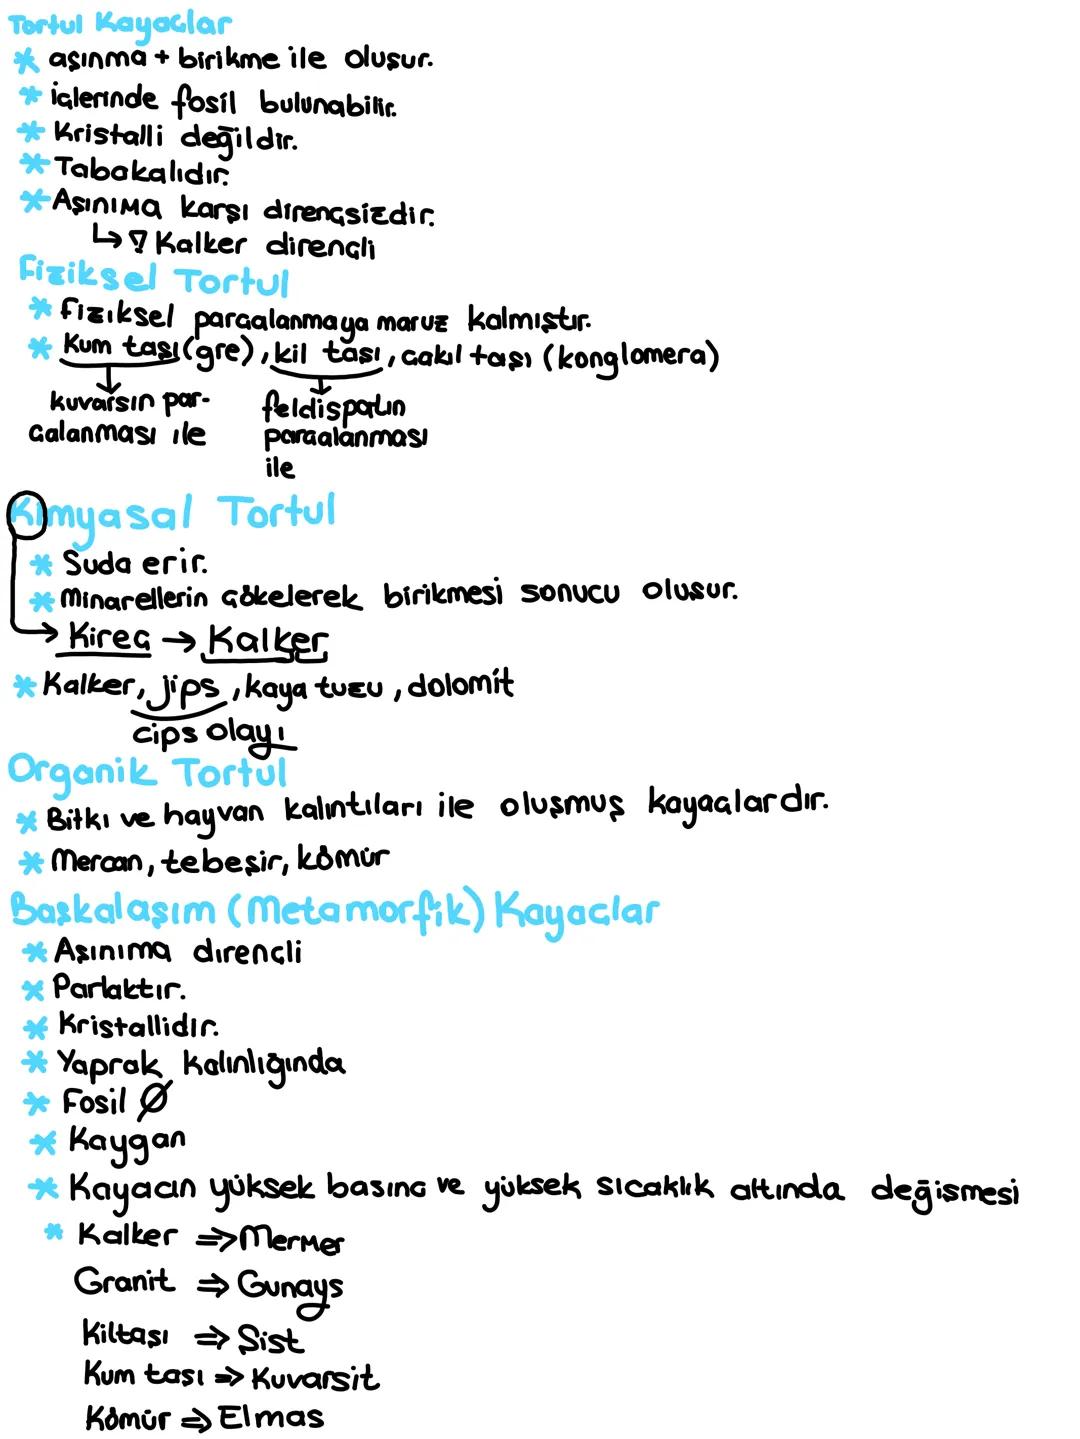 Tortul Kayaçlar
* aşınma + birikme ile oluşur.
* İçlerinde fosil bulunabilir.
* Kristalli değildir.
* Tabakalıdır.
* Aşınıma karşı dirençsizdir.
↳ ? Kalker dirençli
Fiziksel Tortul
* Fiziksel parçalanmaya maruz kalmıştır.
* Kum taşı (gre), kil taşı, çakıl taşı (konglomera)
kuvarsın par- feldispatın
çalanması ile parçalanması
ile
Kimyasal Tortul
* Suda erir.
* Minarellerin çökelerek birikmesi sonucu oluşur.
→ Kireç → Kalker
* Kalker, jips, kaya tuzu, dolomit
cips olayı
Organik Tortul
* Bitki ve hayvan kalıntıları ile oluşmuş kayaçlardır.
* Mercan, tebeşir, kömür
Başkalaşım (Metamorfik) Kayaçlar
* Aşınıma dirençli
* Parlaktır.
* Kristallidir.
* Yaprak kalınlığında
* Fosil Ø
* Kaygan
* Kayacın yüksek basınç ve yüksek sıcaklık altında değişmesi
* Kalker ⇒ Mermer
Granit ⇒ Gunays
Kiltaşı ⇒ Şist
Kum taşı ⇒ Kuvarsit
Kömür ⇒ Elmas